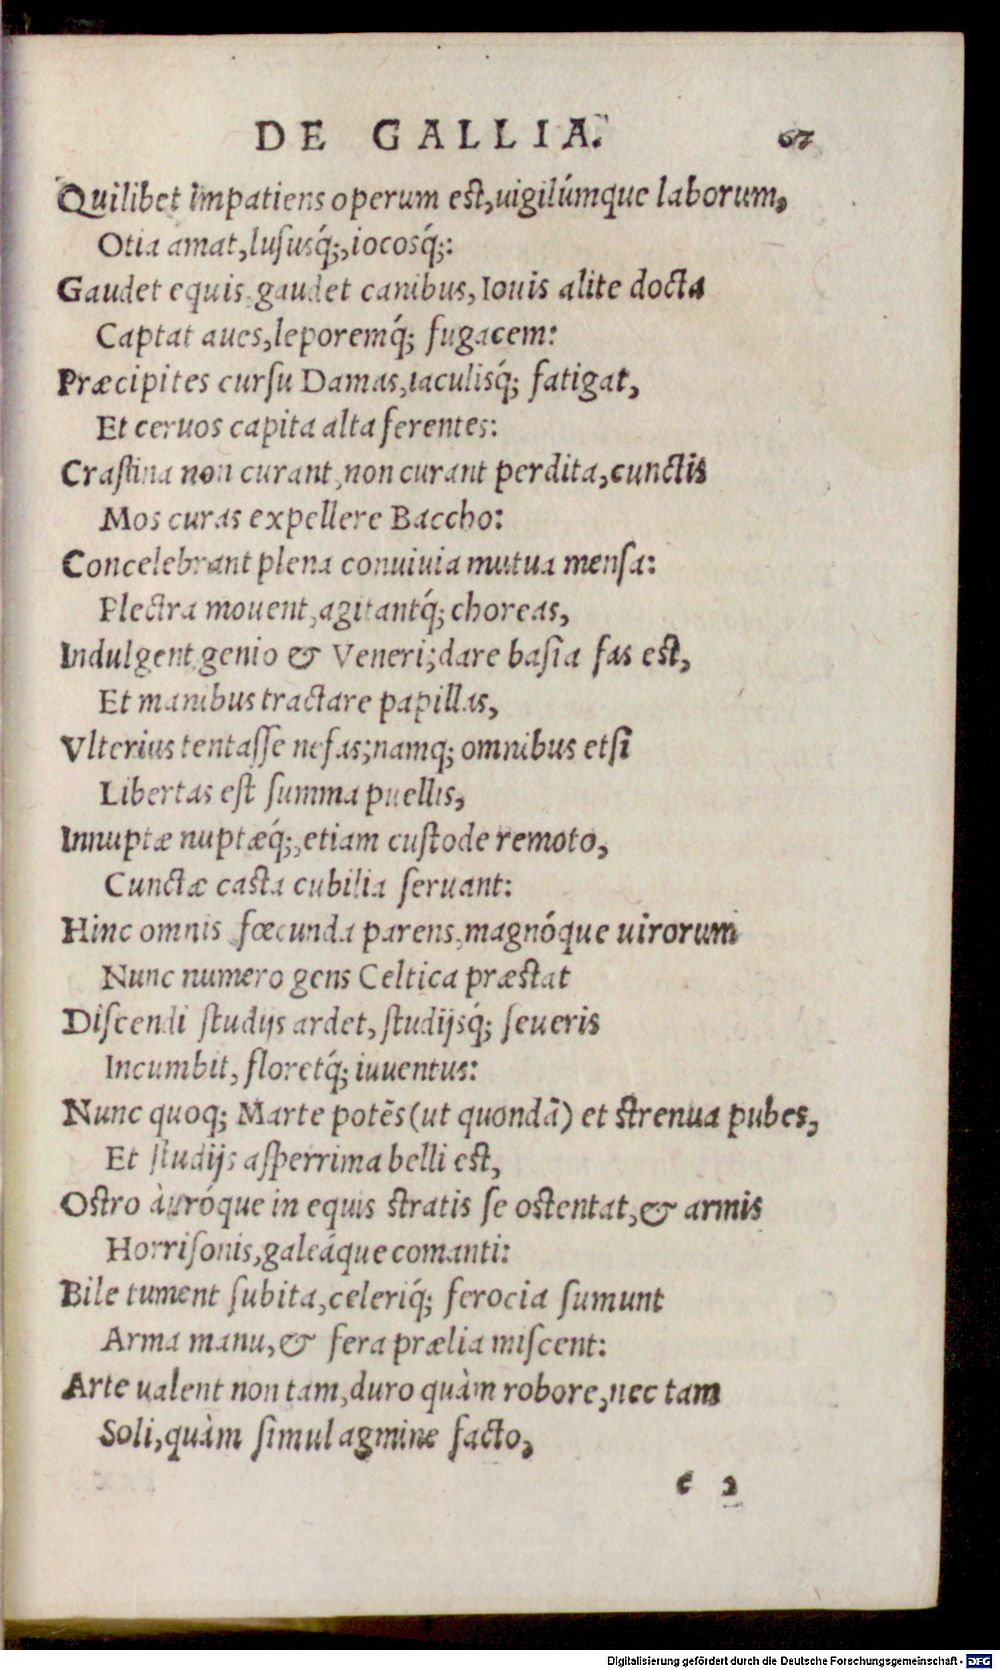 DE GALLIA. 67
Quilibet impatiens operum est, uigilúmque laborum,
Otia amat, lususq́;, iocosq́;:
Gaudet equis gaudet canibus, Iouis alite docta
Captat aues, leporemq́; fugacem:
Præcipites cursu Damas, iaculisq́; fatigat,
Et ceruos capita alta ferentes:
Crastina non curant, non curant perdita, cunctis
Mos curas expellere Baccho:
Concelebrant plena conuiuia mutua mensa:
Plectra mouent, agitantq́; choreas,
Indulgent genio & Veneri; dare basia fas est,
Et manibus tractare papillas,
Vlterius tentasse nefas; namq; omnibus etsi
Libertas est summa puellis,
Innuptæ nuptæq́;, etiam custode remoto,
Cunctæ casta cubilia seruant:
Hinc omnis fœcunda parens, magnóque uirorum
Nunc numero gens Celtica præstat
Discendi studijs ardet, studijsq́; seueris
Incumbit, floretq́; iuuentus:
Nunc quoq; Marte potẽs (ut quondã) et strenua pubes,
Et studijs asperrima belli est,
Ostro àuróque in equis stratis se ostentat, & armis
Horrisonis, galeáque comanti:
Bile tument subita, celeriq́; ferocia sumunt
Arma manu, & fera prælia miscent:
Arte ualent non tam, duro quàm robore, nec tam
Soli, quàm simul agmine facto,
e 2
Digitalisierung gefördert durch die Deutsche Forschungsgemeinschaft - DFG